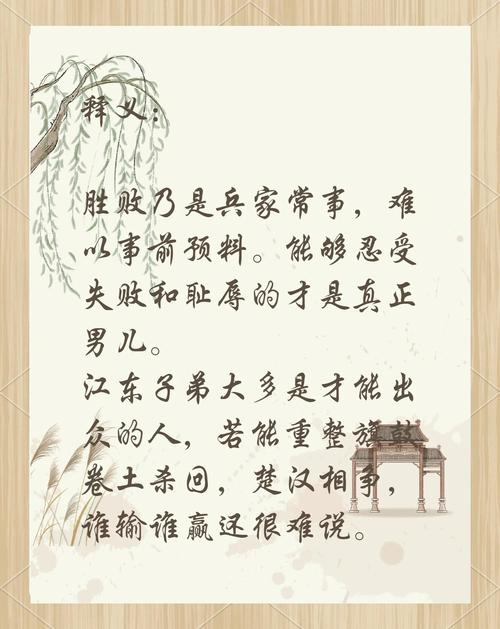 释义：
胜败乃是兵家常事，难
以事前预料。能够忍受
失败和耻辱的才是真正
男儿。
江东子弟大多是才能出
众的人，若能重整旗鼓
卷土杀回，楚汉相争，
谁输谁赢还很难说。